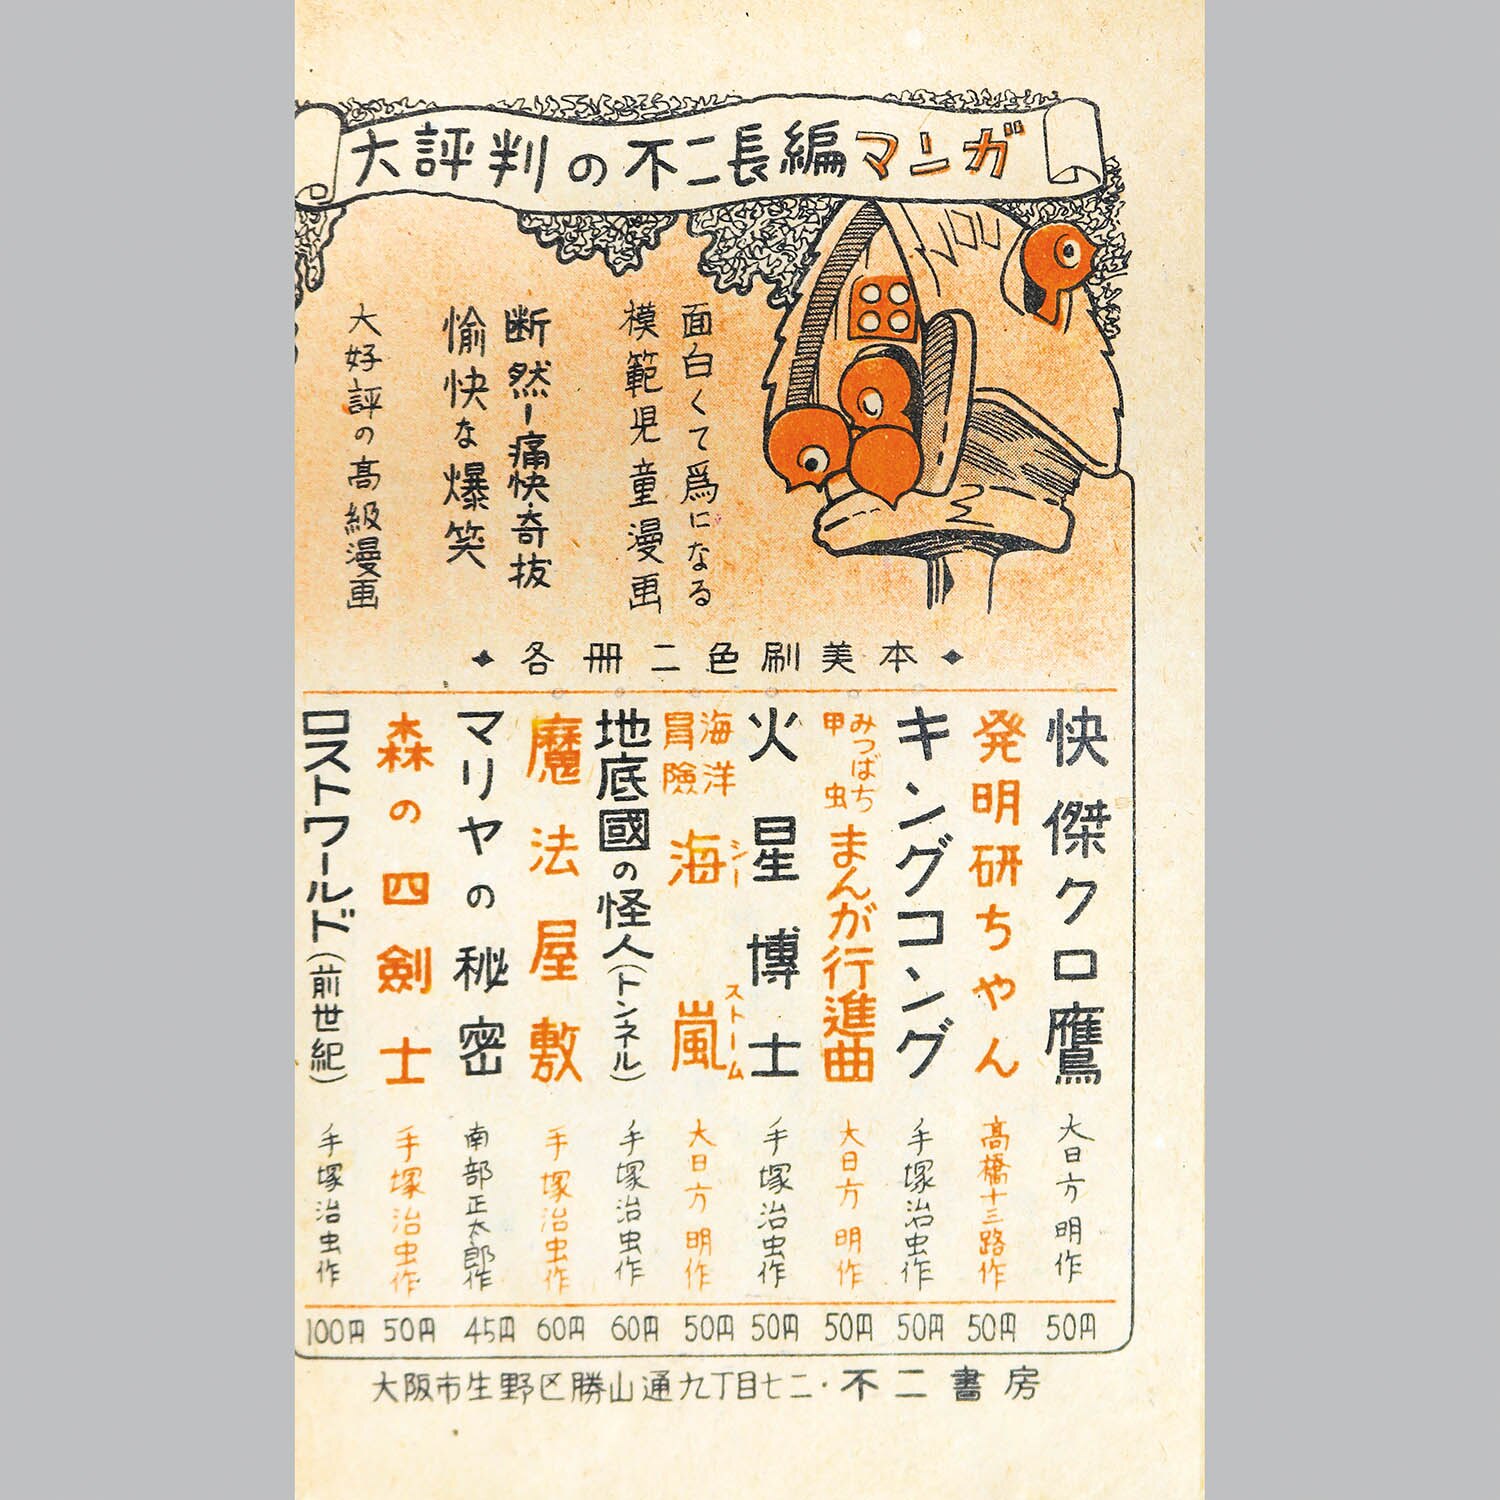 大評判の不二長編マンガ
面白くて爲になる
模範児童漫画
断然！痛快奇抜
愉快な爆笑
大好評の高級漫画
各冊二色刷美本
快傑クロ鷹 大日方明作 50円
発明研ちゃん 高橋十三路作 50円
キングコング 手塚治虫作 50円
みつばち甲虫まんが行進曲 大日方明作 50円
火星博士 手塚治虫作 50円
海洋冒險 海嵐 シーストーム 大日方明作 50円
地底國の怪人(トンネル) 手塚治虫作 60円
魔法屋敷 手塚治虫作 60円
マリヤの秘密 南部正太郎作 45円
森の四劍士 手塚治虫作 50円
ロストワールド(前世紀) 手塚治虫作 100円
大阪市生野区勝山通九丁目七二・不二書房